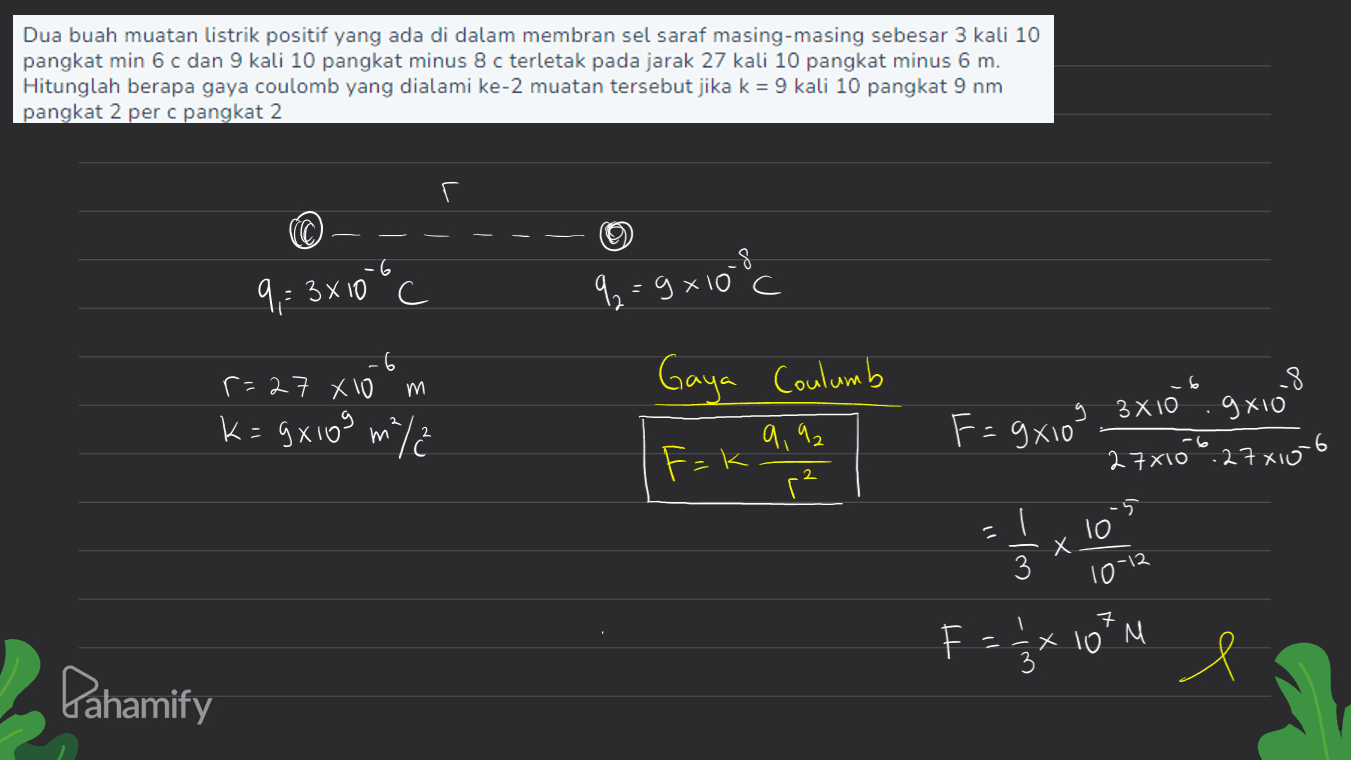 Dua buah muatan listrik positif yang ada di dalam membran sel saraf masing-masing sebesar 3 kali 10
pangkat min 6 c dan 9 kali 10 pangkat minus 8 c terletak pada jarak 27 kali 10 pangkat minus 6 m.
Hitunglah berapa gaya coulomb yang dialami ke-2 muatan tersebut jika k = 9 kali 10 pangkat 9 nm
pangkat 2 per c pangkat 2
r
q₁ = 3 × 10⁻⁶ C
q₂ = 9 × 10⁻⁸ C
r = 27 × 10⁻⁶ m
k = 9 × 10⁹ m²/c²
Gaya Coulumb
F = k q₁ q₂ / r²
F = 9×10⁹ · 3×10⁻⁶ . 9×10⁻⁸ / 27×10⁻⁶ . 27×10⁻⁶
= 1/3 × 10⁻⁵ / 10⁻¹²
F = 1/3 × 10⁷ N
Pahamify